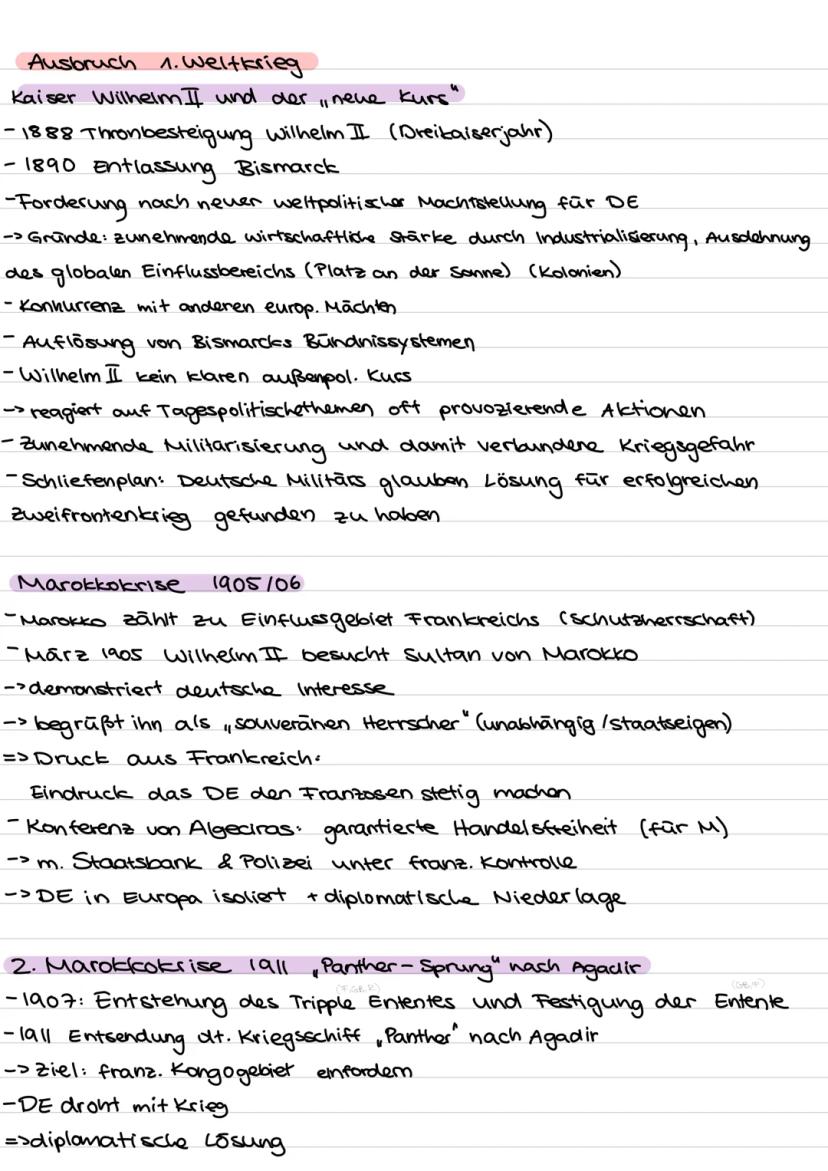 Ausbruch 1. Weltkrieg
Kaiser Wilhelm II und der „neue Kurs"
- 1888 Thronbesteigung Wilhelm II (Dreikaiserjahr)
- 1890 Entlassung Bismarck
- Forderung nach neuer weltpolitischer Machtstellung für DE
-> Gründe: zunehmende wirtschaftliche Stärke durch Industrialisierung, Ausdehnung
des globalen Einflussbereichs (Platz an der Sonne) (Kolonien)
- Konkurrenz mit anderen europ. Mächten
- Auflösung von Bismarcks Bündnissystemen
- Wilhelm II kein klaren außenpol. Kurs
-> reagiert auf Tagespolitischethemen oft provozierende Aktionen
- Zunehmende Militarisierung und damit verbundene Kriegsgefahr
- Schliefenplan: Deutsche Militärs glauben Lösung für erfolgreichen
Zweifrontenkrieg gefunden zu haben
Marokkokrise 1905/06
- Marokko zählt zu Einflussgebiet Frankreichs (Schutzherrschaft)
- März 1905 Wilhelm II besucht Sultan von Marokko
-> demonstriert deutsche Interesse
-> begrüßt ihn als „souveränen Herrscher" (unabhängig/staatseigen)
=> Druck aus Frankreich:
Eindruck das DE den Franzosen stetig machen
- Konferenz von Algeciras: garantierte Handelsfreiheit (für M)
-> m. Staatsbank & Polizei unter franz. Kontrolle
-> DE in Europa isoliert + diplomatische Niederlage
2. Marokkokrise 1911 „Panther-Sprung" nach Agadir
(F, GB, R) (GB, F)
- 1907: Entstehung des Tripple Ententes und Festigung der Entente
- 1911 Entsendung dt. Kriegsschiff „Panther" nach Agadir
-> Ziel: franz. Kongogebiet einfordern
- DE droht mit Krieg
=> diplomatische Lösung